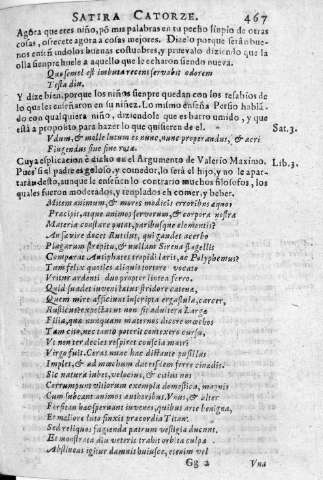 SATIRA CATORZE. 467
Agora que eres niño, pō mis palabras en tu pecho linpio de otras
cosas, ofrecete agora a cosas mejores. Dizelo porque serān bue-
nos enseñandolos buenas costumbres, y pruevalo diziendo que la
olla siempre huele a aquello que le echaron siendo nueva.
Quo semel est imbuta recens servabit odorem
Testa diu.
Y dize bien, porque los niños siempre quedan con los resabios de
lo que les enseñaron en su niñez. Lo mismo enseña Persio hablā-
do con qualquiera niño, diziendole que es barro umido, y que
està a proposito para hazer lo que quisieren de el. Sat.3.
Vdum, & molle lutum es nunc, nunc properandus, & acri
Fingendus sine fine rota.
Cuya esplicacion è dicho en el Argumento de Valerio Maximo. Lib.3.
Pues si el padre es goloso, y comedor, lo serà el hijo, y no le apar-
tarà desto, aunque le enseñen lo contrario muchos filosofos, los
quales fueron moderados, y templados en comer, y beber.
Mitem animum, & mores modicis erroribus aequos
Praecipit, atque animas servorum, & corpora nostra
Materia constare putat, paribusque elementis?
An saevire docet Rutilus, qui gaudet acerbo
Plagarum strepitu, & nullam Sirena flagellis
Comparat Antiphates trepidi laris, ac Polyphemus?
Tam felix quoties aliquis tortore vocato
Vritur ardenti duo propter lintea ferro.
Quid suadet iuveni laetus stridore catenae,
Quem mire afficiunt inscripta ergastula, carcer,
Rusticus? expectas ut non sit adultera Largae
Filia, quae nunquam maternos dicere moechos
Tam cito, nec tanto poterit contexere cursu,
Vt non ter decies respiret conscia matri
Virgo fuit. Ceras nunc hac dictante pusillas
Implet, & ad moechum dat eisdem ferre cinaedis.
Sic natura iubet, velocius, & citius nos
Corrumpunt vitiorum exempla domestica, magnis
Cum subeant animos authoribus. Vnus, & alter
Forsitan haec spernant iuvenes, quibus arte benigna,
Et meliore luto finxit praecordia Titan.
Sed reliquos fugienda patrum vestigia ducunt,
Et monstrata diu veteris trahit orbita culpae
Abstineas igitur damnis huiusce, etenim vel
Gg 2 Vna